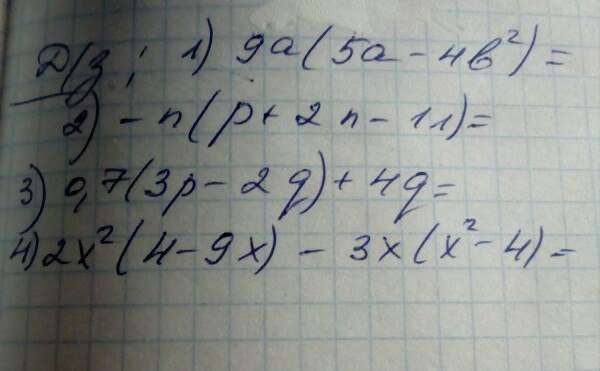 Д/з; 1) 9a(5a-4b²)=
2) -n(p+2n-11)=
3) 0,7(3p-2q)+4q=
4) 2x²(4-9x)-3x(x²-4)=